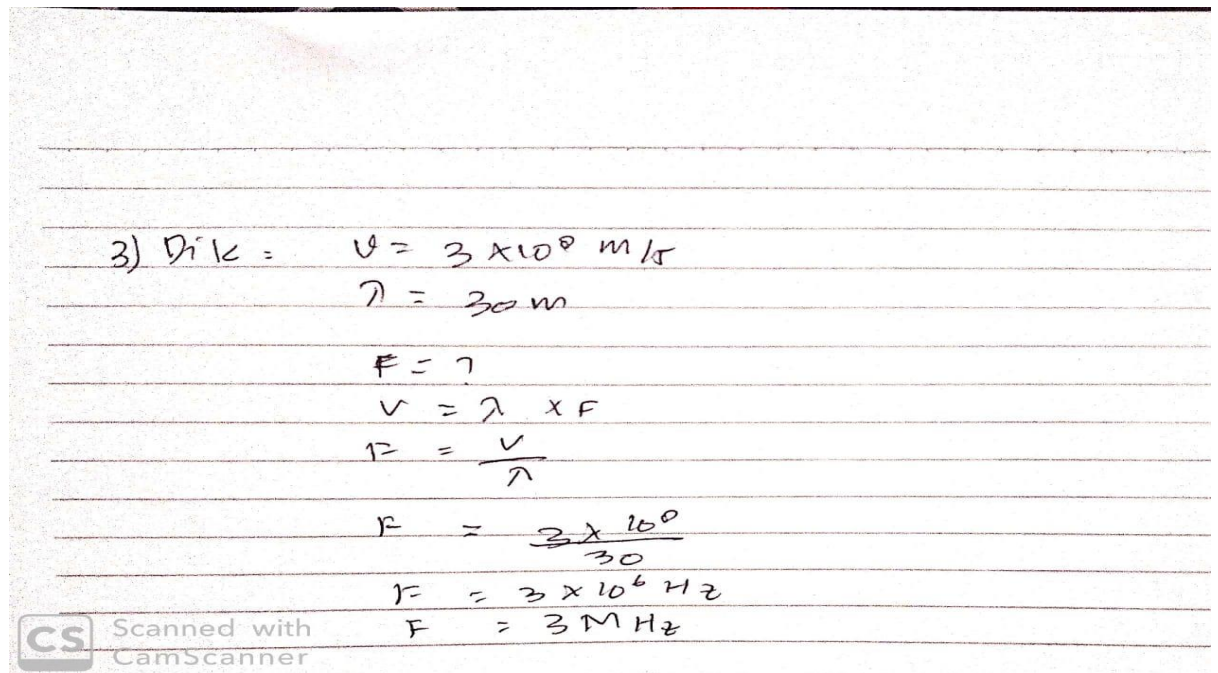 3) Dik = v = 3 × 10⁸ m/s
λ = 30 m
F = ?
v = λ × F
F = v / λ
F = 3 × 10⁸ / 30
F = 3 × 10⁶ Hz
F = 3 M Hz
CS Scanned with
CamScanner